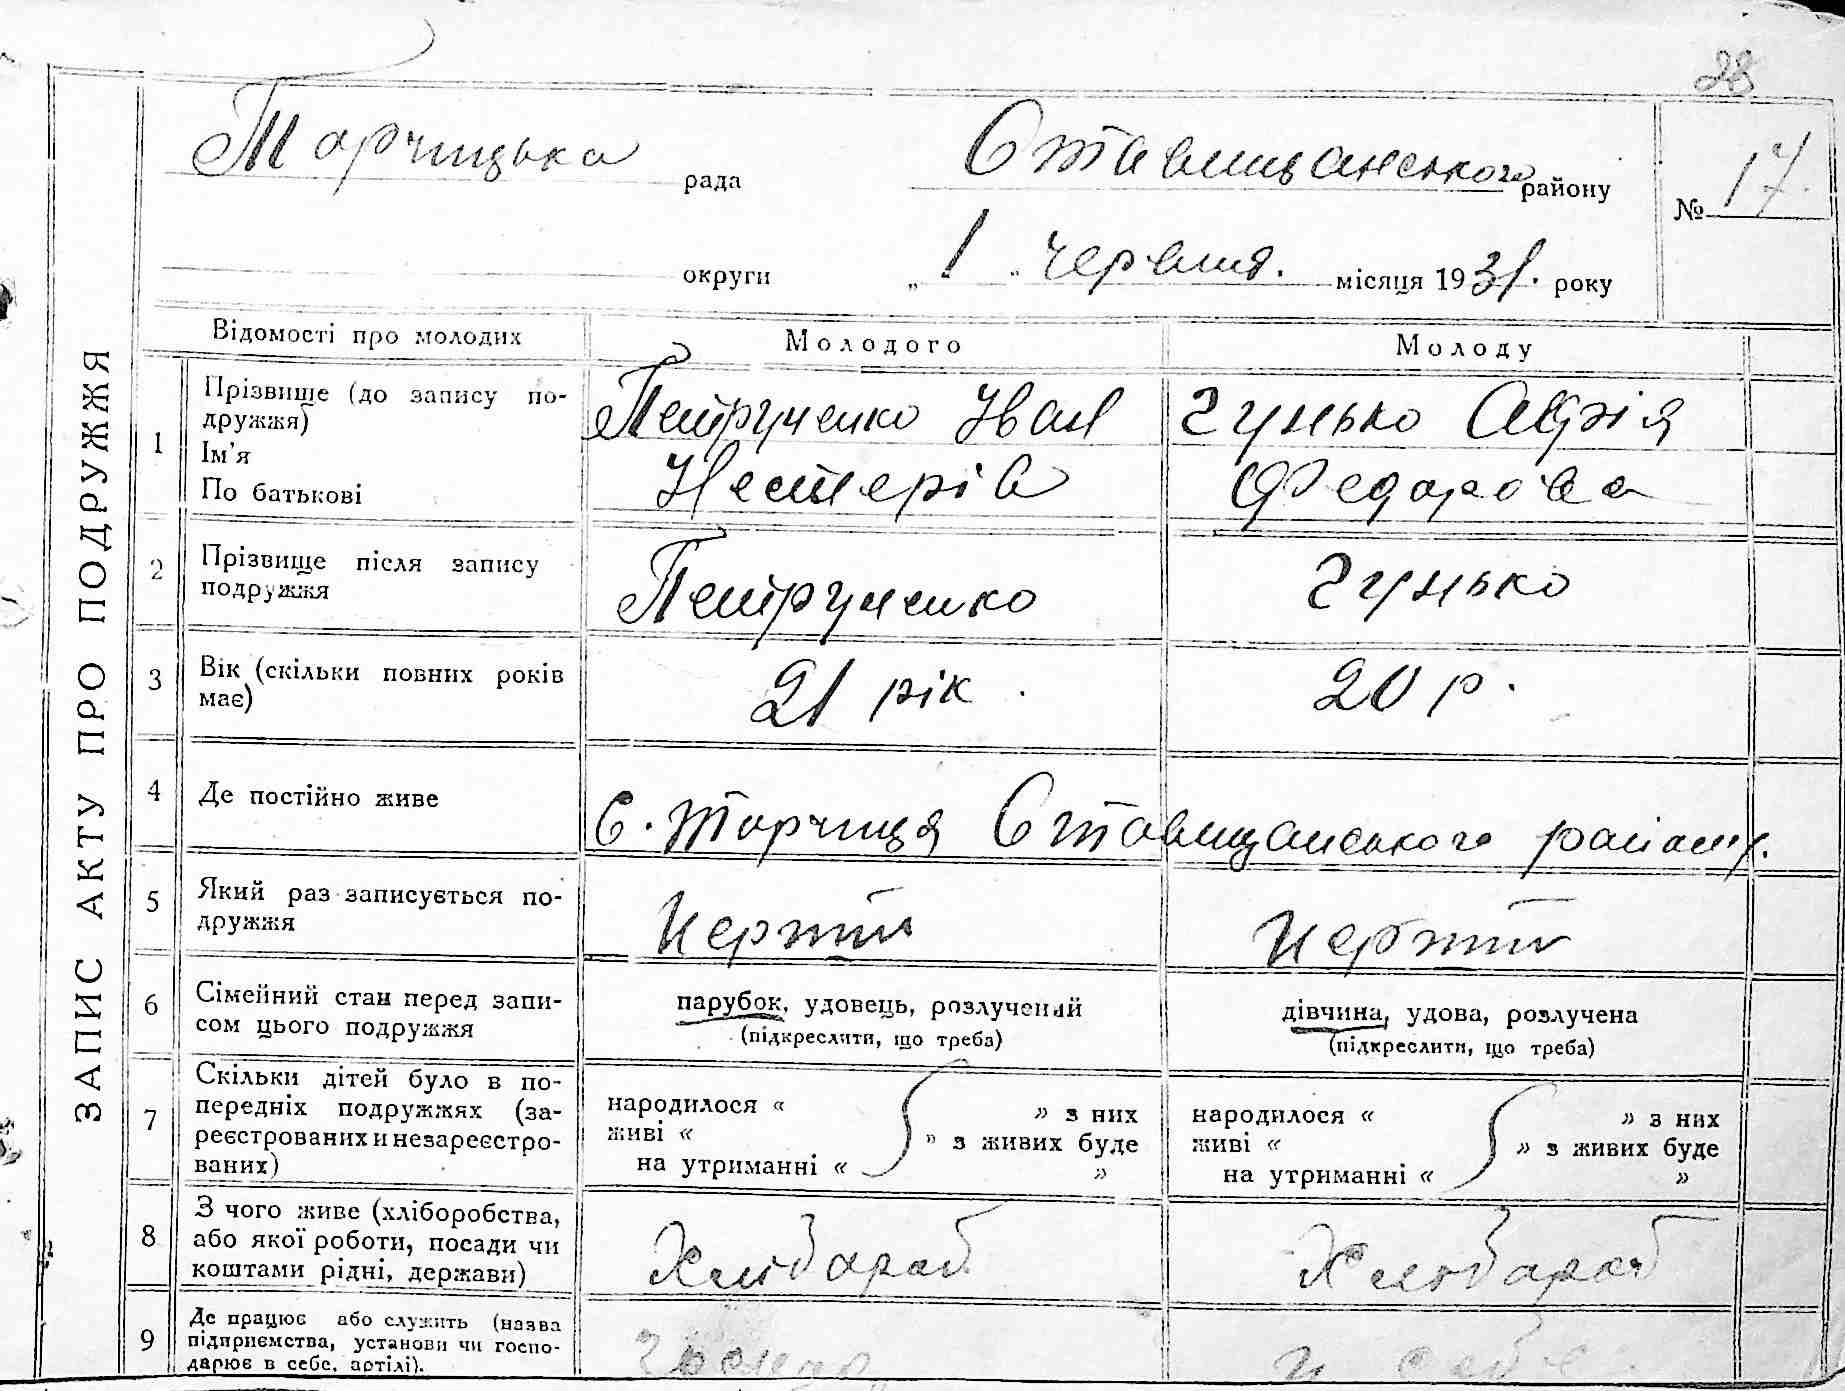 28
Торчицька рада Ставищанського району
№ 17.
округи „ 1 " червня. місяця 1931. року
ЗАПИС АКТУ ПРО ПОДРУЖЖЯ
Відомості про молодих Молодого Молоду
1 Прізвище (до запису по-
дружжя)
Ім'я
По батькові
Петрученко Іван
Нестерів
Гунько
Федорова
2 Прізвище після запису
подружжя
Петрученко
Гунько
3 Вік (скільки повних років
має)
21 рік.
20 р.
4 Де постійно живе
С. Торчиця Ставищанського району.
5 Який раз записується по-
дружжя
6 Сімейний стан перед запи-
сом цього подружжя
парубок, удовець, розлучений
(підкреслити, що треба)
дівчина, удова, розлучена
(підкреслити, що треба)
7 Скільки дітей було в по-
передніх подружжях (за-
реєстрованих и незареєстро-
ваних)
народилося « » з них
живі « » з живих буде
на утриманні « »
народилося « » з них
живі « » з живих буде
на утриманні « »
8 З чого живе (хліборобства,
або якої роботи, посади чи
коштами рідні, держави)
Хлібороб
Хлібороб
9 Де працює або служить (назва
підприємства, установи чи госпо-
дарює в себе, артілі).